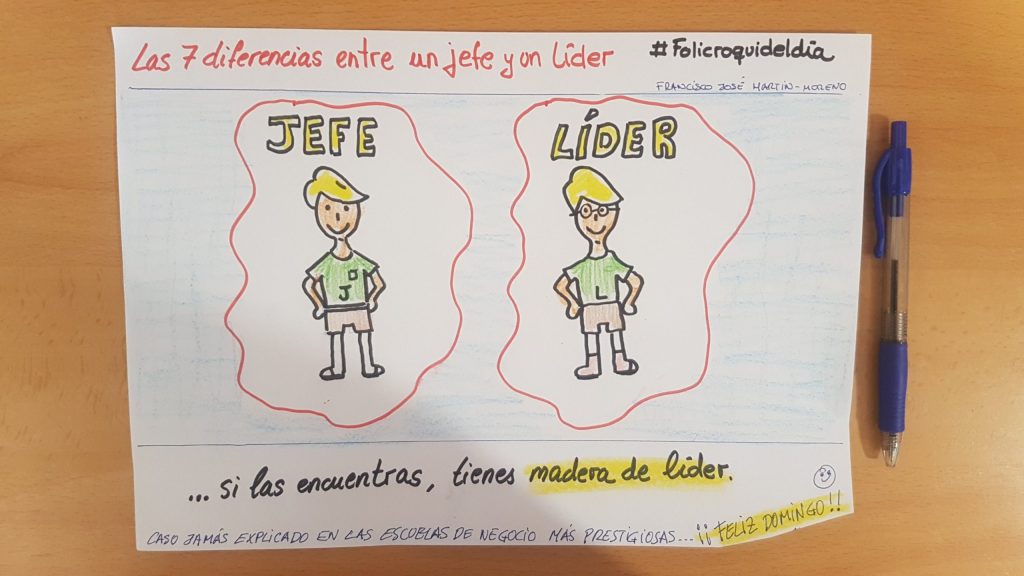 Las 7 diferencias entre un jefe y un líder
#Folicroquideldía
FRANCISCO JOSÉ MARTIN-MORENO
JEFE
LÍDER
J
L
... si las encuentras, tienes madera de líder.
CASO JAMÁS EXPLICADO EN LAS ESCUELAS DE NEGOCIO MÁS PRESTIGIOSAS... ¡¡FELIZ DOMINGO!!